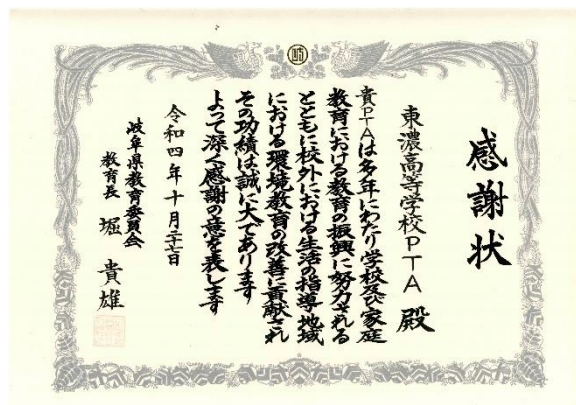 感謝状
東濃高等学校PTA 殿
貴PTAは多年にわたり学校及び家庭
教育における教育の振興に努力される
とともに校外における生活の指導地域
における環境教育の改善に貢献され
その功績は誠に大であります
よって深く感謝の意を表します
令和四年十月二十七日
岐阜県教育委員会
教育長 堀 貴雄